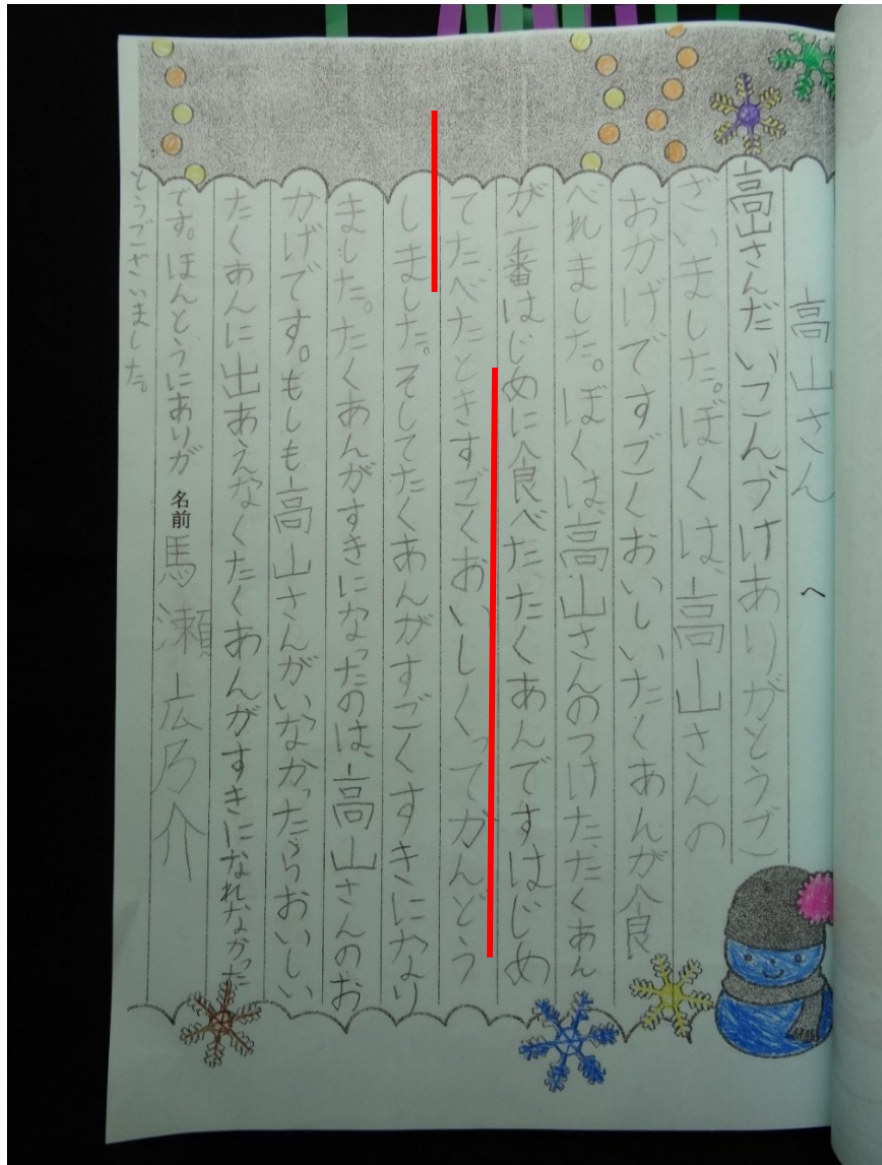 高山さん へ
高山さんだいこんづけありがとうご
ざいました。ぼくは、高山さんの
おかげですごくおいしいたくあんが食
べれました。ぼくは、高山さんのつけた、たくあん
が一番はじめに食べた、たくあんですはじめ
てたべたときすごくおいしくってかんどう
しました。そしてたくあんがすごくすきになり
ました。たくあんがすきになったのは、高山さんのお
かげです。もしも高山さんがいなかったらおいしい
たくあんに出あえなくたくあんがすきになれなかった
です。ほんとうにありが
とうございました。
名前 馬瀬広乃介